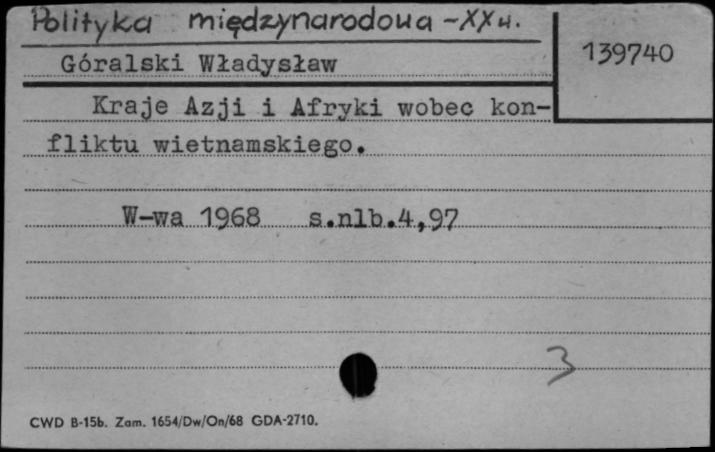 Polityka międzynarodowa - XX w.
139740
Góralski Władysław
Kraje Azji i Afryki wobec kon-
fliktu wietnamskiego.
W-wa 1968 s.nlb.4,97
3
CWD B-15b. Zam. 1654/Dw/On/68 GDA-2710.